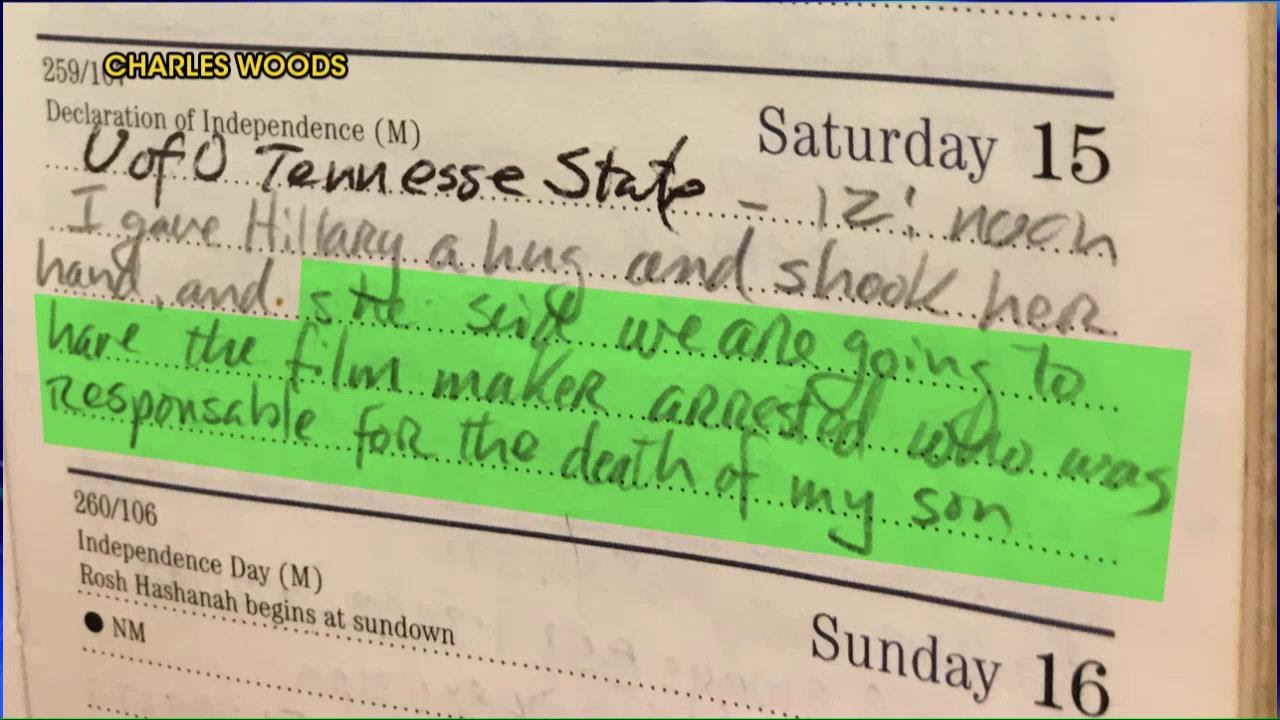 CHARLES WOODS
259/107
Declaration of Independence (M)
Saturday 15
U of O Tennesse State - 12: noon
I gave Hillary a hug and shook her
hand, and. she said we are going to
have the film maker arrested who was
responsable for the death of my son
260/106
Independence Day (M)
Rosh Hashanah begins at sundown
● NM
Sunday 16